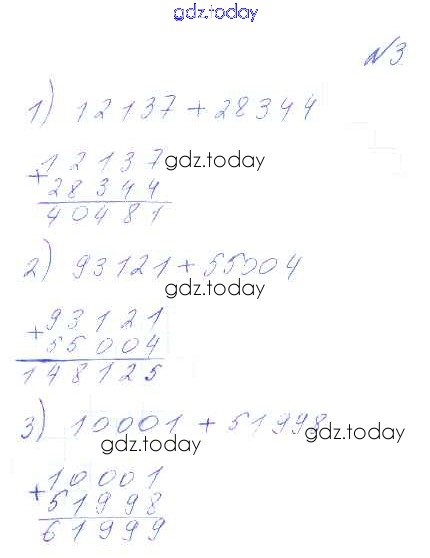 gdz.today
№3
1) 12137 + 28344
12137
gdz.today
+
28344
40481
2) 93121 + 55004
gdz.today
93121
+
55004
148125
3) 10001 + 51998
gdz.today
gdz.today
10001
+
51998
gdz.today
61999